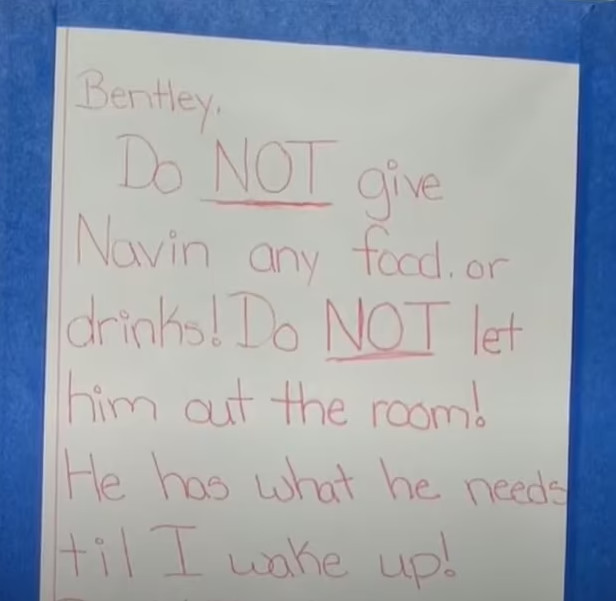 Bentley,
Do NOT give
Navin any food. or
drinks! Do NOT let
him out the room!
He has what he needs
til I wake up!